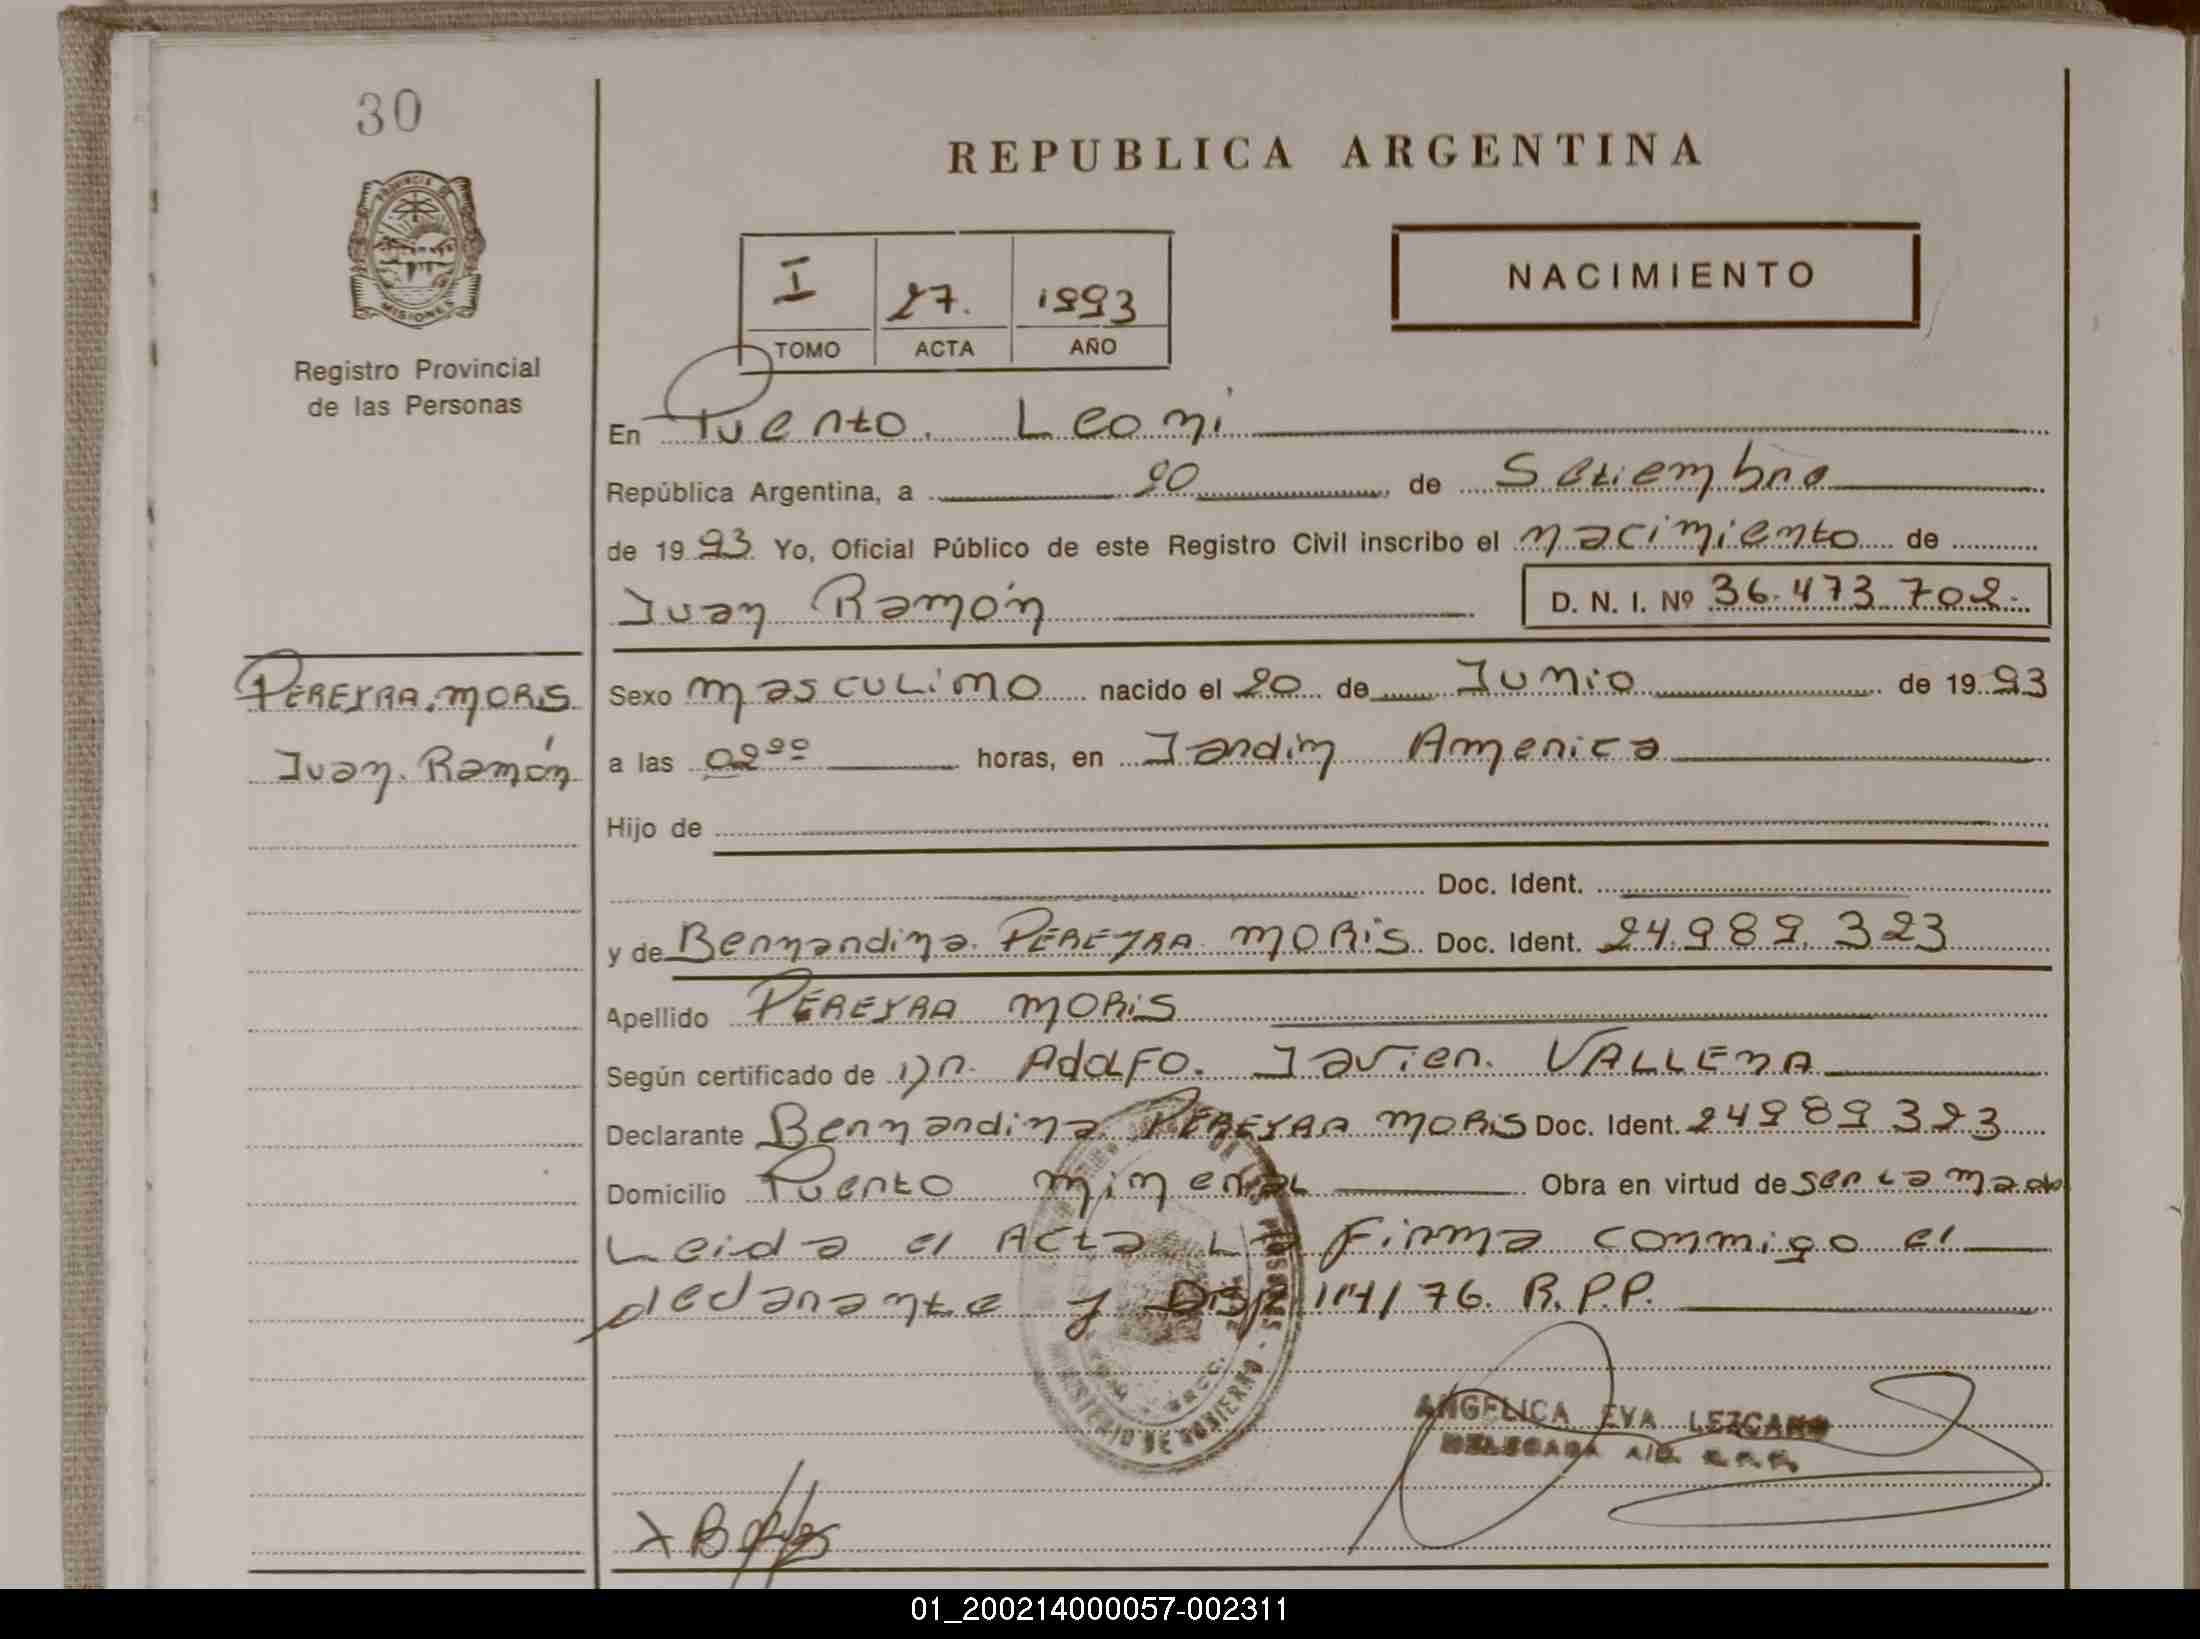 30
REPUBLICA ARGENTINA
PROVINCIA DE
MISIONES
Registro Provincial
de las Personas
NACIMIENTO
I 27. 1993
TOMO ACTA AÑO
En Puerto Leoni
República Argentina, a 20 de Setiembre
de 1993 Yo, Oficial Público de este Registro Civil inscribo el nacimiento de
Juan Ramón D. N. I. Nº 36.473.702.
PEREYRA MORiS
Juan Ramón
Sexo masculino nacido el 20 de Junio de 1993
a las 02 horas, en Jardin America
Hijo de
Doc. Ident.
y de Bernardina PEREYRA MORiS Doc. Ident. 24.989.323
Apellido PEREYRA MORiS
Según certificado de Dr. AdolFo Javier VALLEMA
Declarante Bernardina PEREYRA MORiS Doc. Ident. 24989323
Domicilio Puerto mineral Obra en virtud de ser la madre
Leida el Acta La firma conmigo el
declarante y Disp. 114/76. R.P.P.
MINISTERIO DE GOBIERNO
ANGELICA EVA LEZCANO
DELEGADA A/C. R.P.P.
01_200214000057-002311